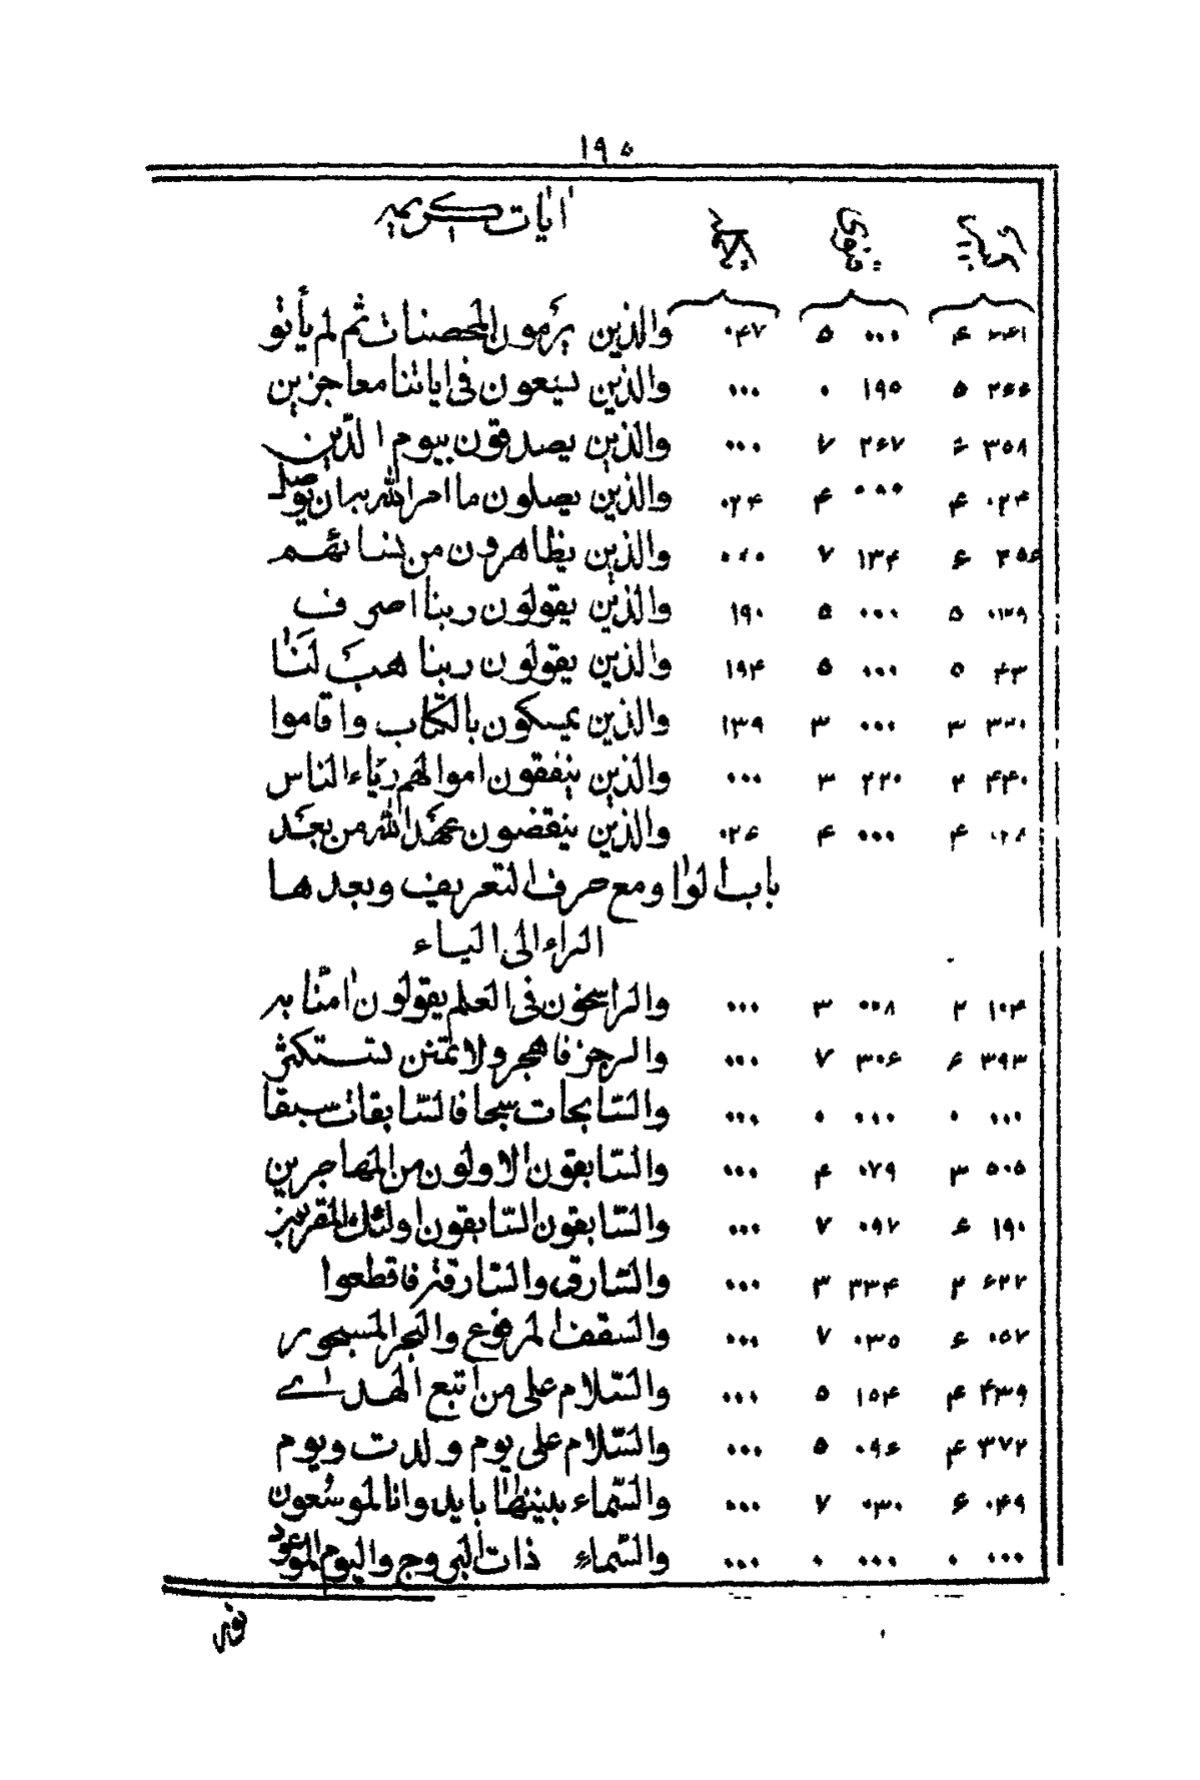 ١٩٥
اٰيات كريمه
٥ ٠٠٠ ٠۴٧ والذين يَرمون المحصنات ثم لم يأتو
١٩٥ ٠ ٠٠٠ والذين يسعون فى اياتنا معاجزين
٣٥٨ ٢۶٧ ٧ ٠٠٠ والذين يصدقون بيوم الدّين
٠٢۴ ۴ ۴ ٠٢۴ والذين يصلون ما امر الله به ان يوصل
١٣۴ ٧ والذين يظاهرون من نسائهم
٥ ٠٠٠ ٥ ١٩٠ والذين يقولون ربنا اصرف
٥ ٠٠٠ ٥ ١٩۴ والذين يقولون ربنا هبَ لَنَا
٣ ٠٠٠ ٣ ١٣٩ والذين يمسكون بالكتاب واقاموا
۴۴٠ ٢ ٢٢٠ ٣ ٠٠٠ والذين ينفقون اموالهم رئاء الناس
۴ ٠٠٠ ۴ ٠٢۶ والذين ينقضون عهَد الله من بعَد
باب الواو مع حرف التعريف وبعدها
الراء الى الياء
١٠۴ ٢ ٠٠٨ ٣ ٠٠٠ والراسخون فى العلم يقولون اٰمنّا به
٣٩٣ ۶ ٣٠۶ ٧ ٠٠٠ والرجز فاهجر ولا تمنن تستكثر
٠٠٠ ٠ ٠٠٠ ٠ ٠٠٠ والسّابحات سبحا فالسّابقات سبقا
٥٠٥ ٣ ٠٧٩ ۴ ٠٠٠ والسّابقون الاولون من المهاجرين
١٩٠ ۶ ٠٩٢ ٧ ٠٠٠ والسّابقون السّابقون اولئك المقربين
۶٢٢ ٢ ٣٣۴ ٣ ٠٠٠ والسّارق والسّارقة فاقطعوا
٠٥٢ ۶ ٠٣٥ ٧ ٠٠٠ والسّقف المرفوع والبحر المسجور
۴٣٩ ۴ ١٥۴ ٥ ٠٠٠ والسّلام على من اتبع الهدى
٣٧٢ ۴ ٠٩۶ ٥ ٠٠٠ والسّلام على يوم ولدت ويوم
٠۴٩ ۶ ٠٣٠ ٧ ٠٠٠ والسّماء بنيناها بايد وانا لموسعون
٠٠٠ ٠ ٠٠٠ ٠ ٠٠٠ والسّماء ذات البروج واليوم الموعود